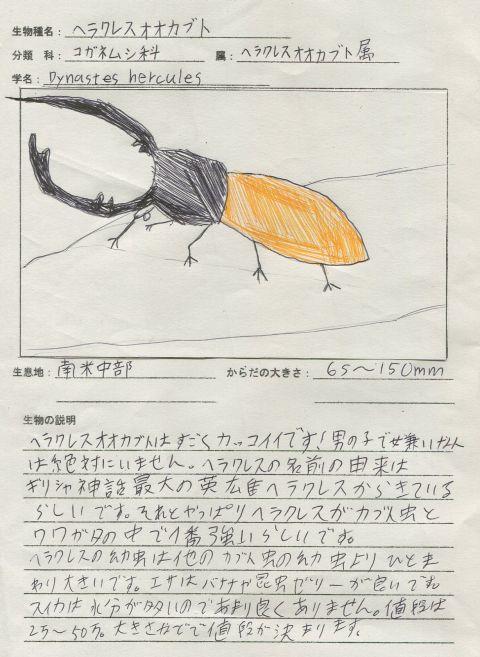 生物種名：ヘラクレスオオカブト
分類　科：コガネムシ科　属：ヘラクレスオオカブト属
学名：Dynastes hercules
生息地：南米中部　からだの大きさ：65～150mm
生物の説明
ヘラクレスオオカブトはすごくカッコイイです！男の子で嫌いな人
は絶対にいません。ヘラクレスの名前の由来は
ギリシャ神話最大の英雄ヘラクレスからきている
らしいです。それとやっぱりヘラクレスがカブト虫と
クワガタの中で1番強いらしいです。
ヘラクレスの幼虫は他のカブト虫の幼虫よりひとま
わり大きいです。エサはバナナか昆虫ゼリーが良いです。
スイカは水分が多いのであまり良くありません。値段は
2万～50万。大きさなどで値段が決まります。